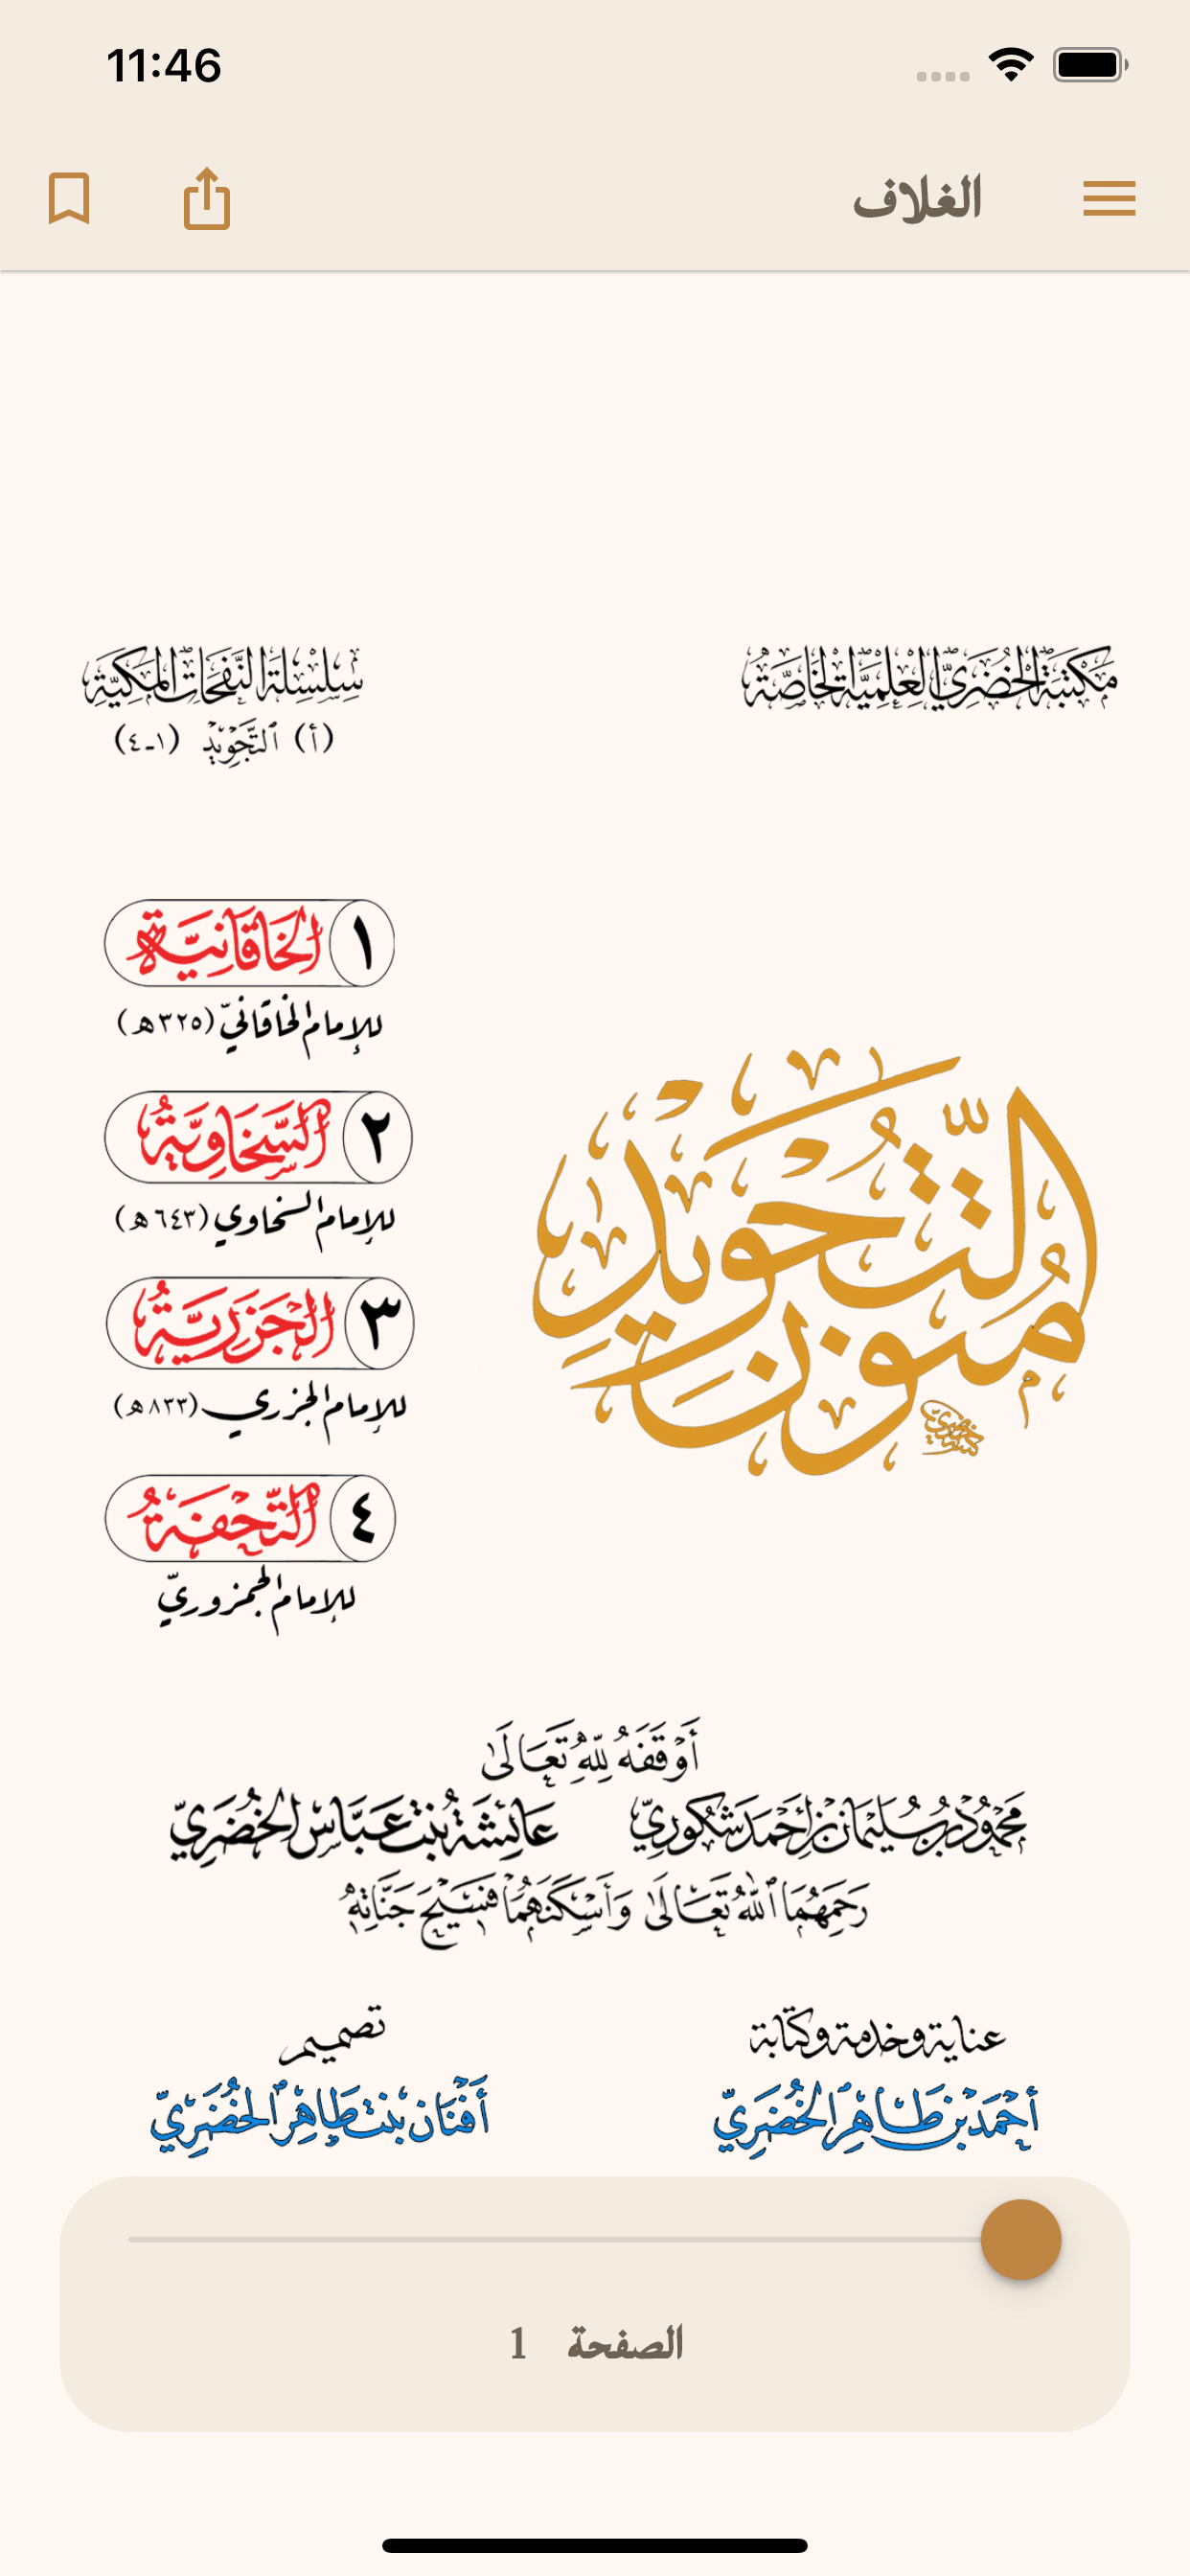 11:46
الغلاف
مكتبة الخضري العلمية الخاصة
سلسلة النفحات المكية
(أ) التجويد (١-٤)
متون التجويد
١ الخاقانية
للإمام الخاقاني (٣٢٥هـ)
٢ السخاوية
للإمام السخاوي (٦٤٣هـ)
٣ الجزرية
للإمام الجزري (٨٣٣هـ)
٤ التحفة
للإمام الجمزوري
أوقفه لله تعالى
محمود بن سليمان بن أحمد شكوري
عائشة بنت عباس الخضري
رحمهما الله تعالى وأسكنهما فسيح جناته
عناية وخدمة وكتابة
أحمد بن طاهر الخضري
تصميم
أفنان بنت طاهر الخضري
الصفحة 1